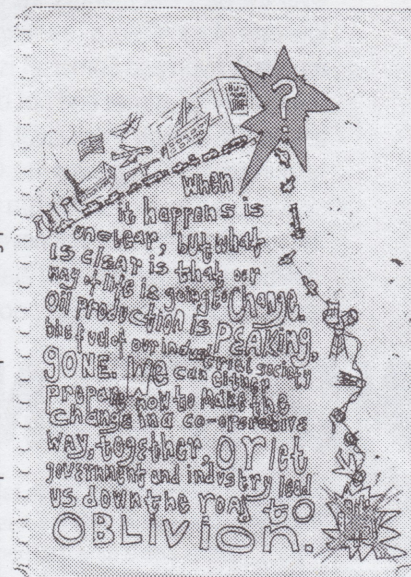 ?
When
it happens is
unclear, but what
is clear is that our
way of life is going to Change.
Oil production is PEAKING,
the fuel of our industrial society
GONE. We can either
prepare now to make the
change in a co-operative
way, together, or let
government and industry lead
us down the road to
OBLIVION.